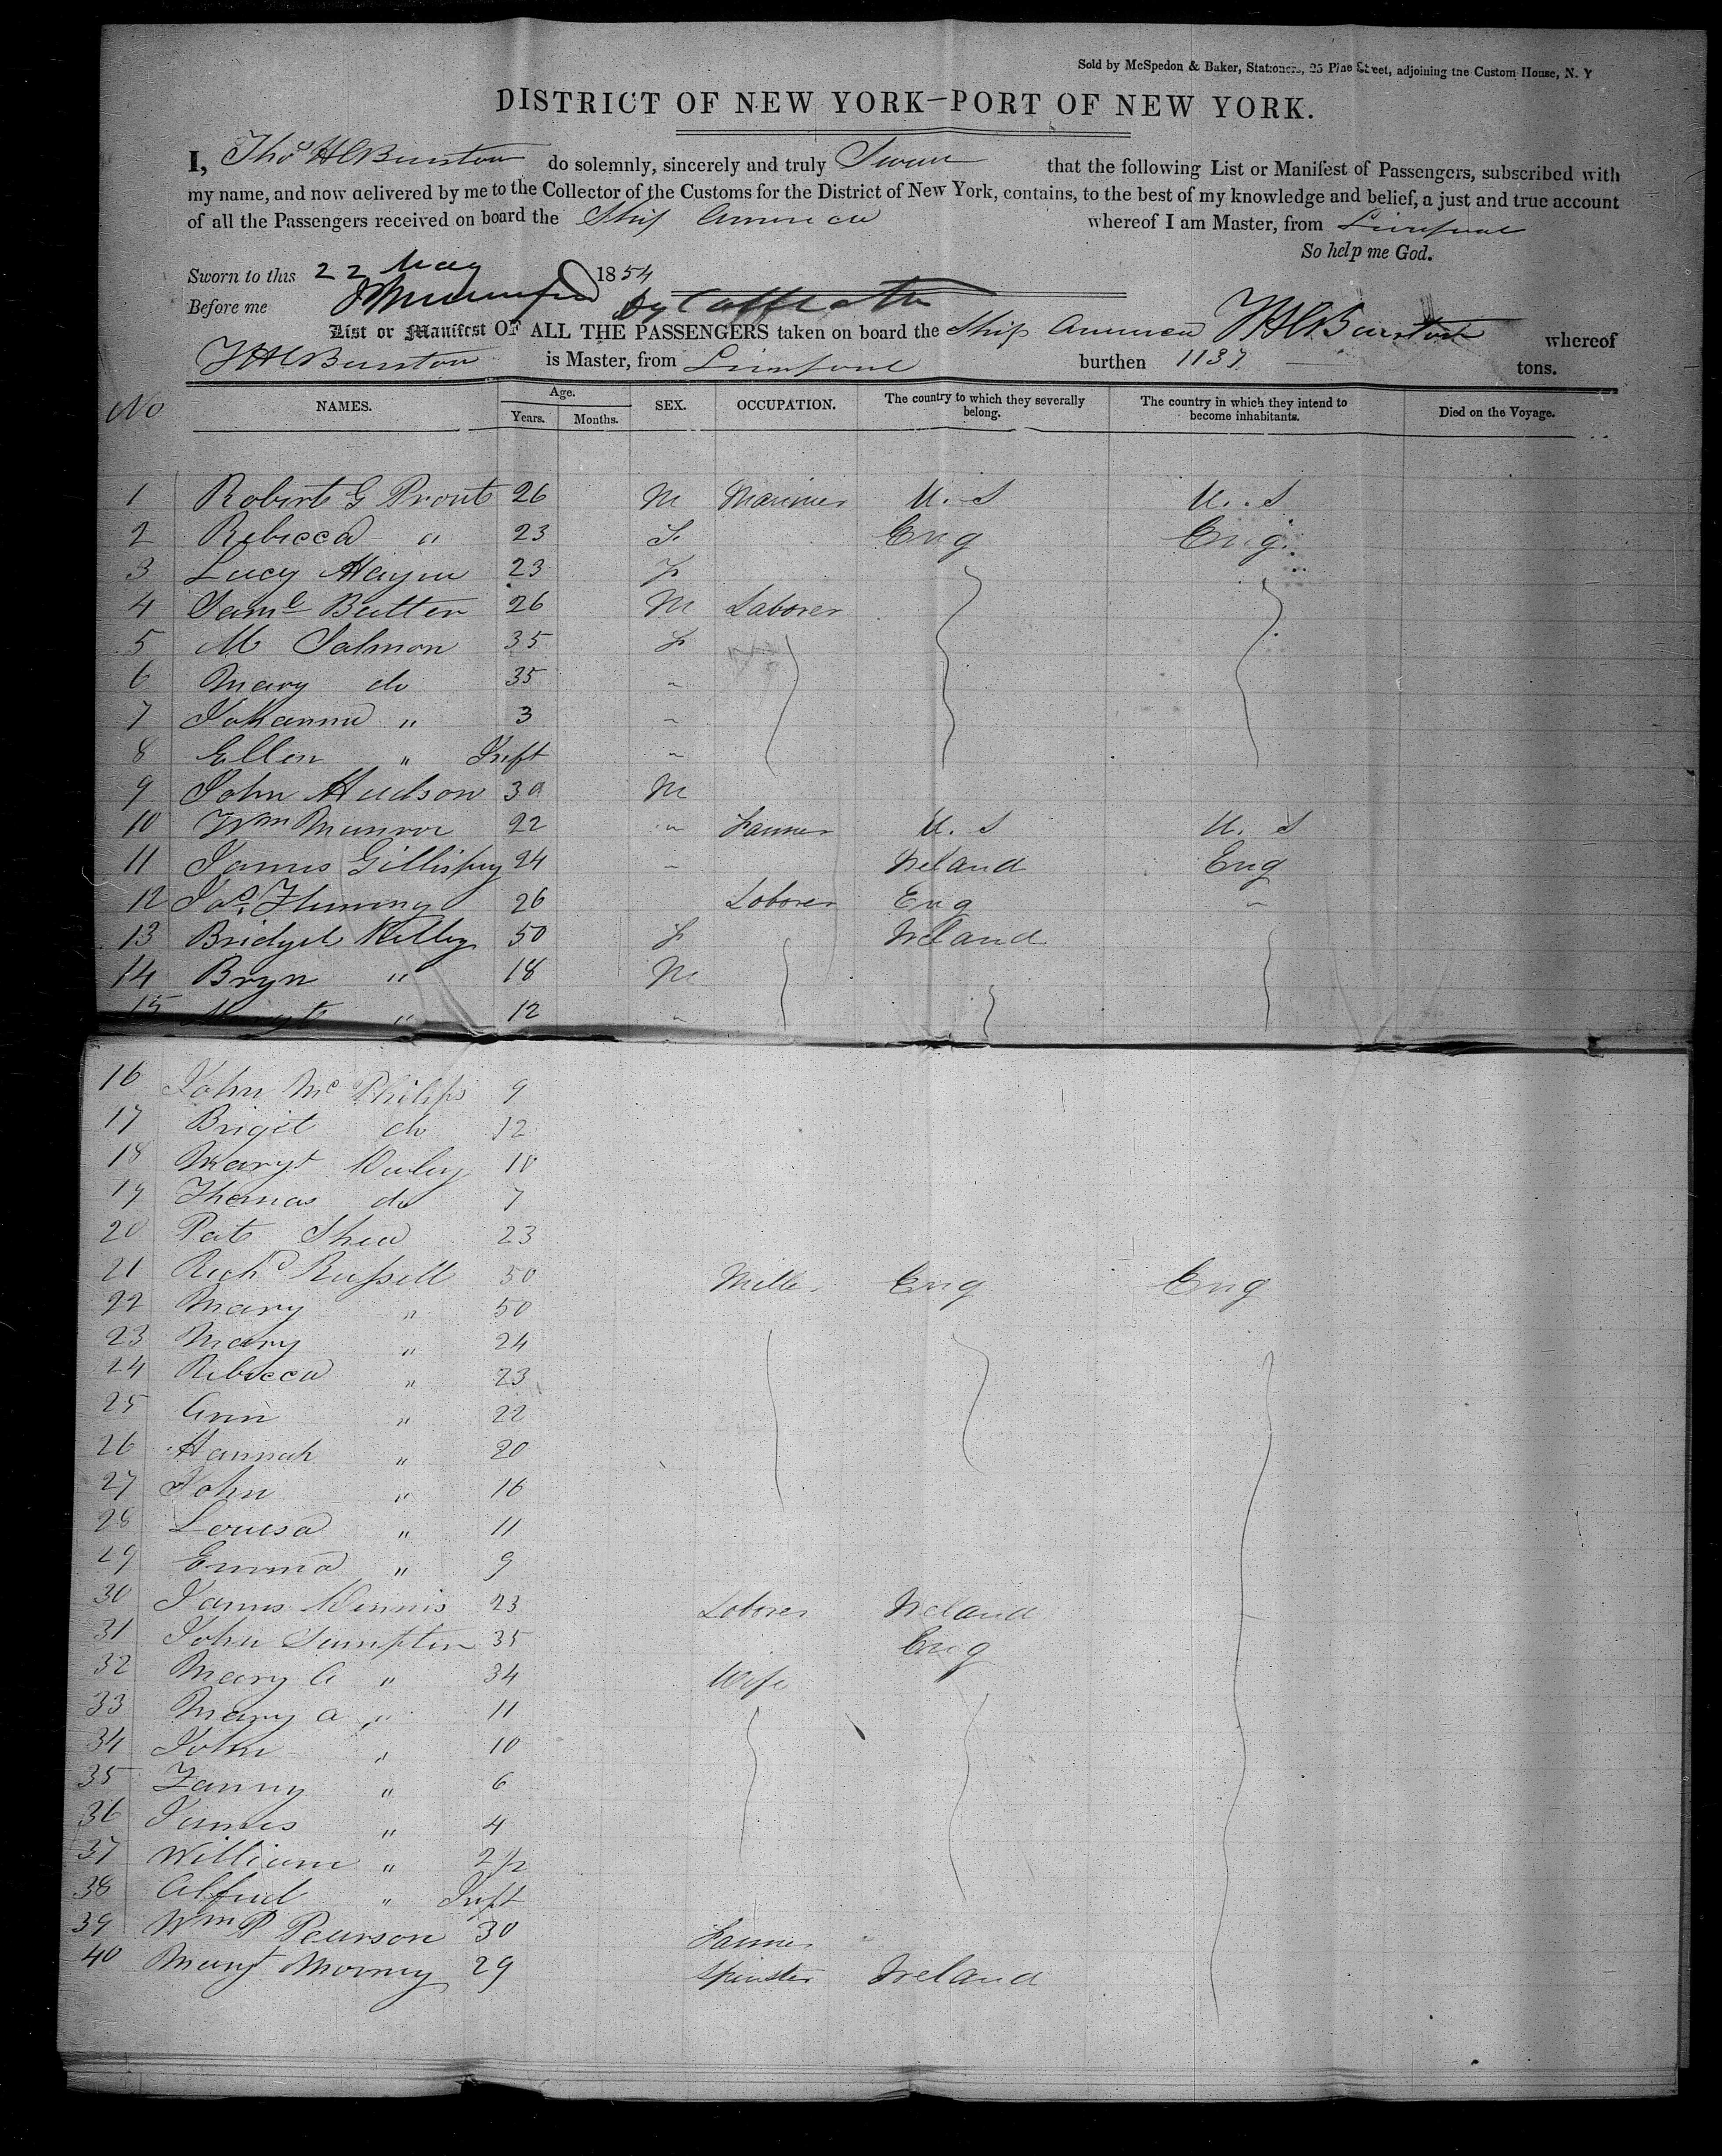 Sold by McSpedon & Baker, Stationers, 25 Pine Street, adjoining the Custom House, N. Y
DISTRICT OF NEW YORK—PORT OF NEW YORK.
I, Thos H Burstow do solemnly, sincerely and truly Swear that the following List or Manifest of Passengers, subscribed with
my name, and now delivered by me to the Collector of the Customs for the District of New York, contains, to the best of my knowledge and belief, a just and true account
of all the Passengers received on board the Ship America whereof I am Master, from Liverpool
So help me God.
Sworn to this 22 May 1854
Before me
List or Manifest OF ALL THE PASSENGERS taken on board the Ship America whereof
is Master, from Liverpool burthen 1137 tons.
No NAMES. Age. Years. Months. SEX. OCCUPATION. The country to which they severally belong. The country in which they intend to become inhabitants. Died on the Voyage.
1 Robert G Prout 26 M Mariner U. S U. S
2 Rebecca " 23 F Eng Eng
3 Lucy Hayne 23 F
4 Saml Butter 26 M Laborer
5 M Salmon 35 F
6 Mary do 35 "
7 Johanna " 3 "
8 Ellen " Inft "
9 John Hudson 30 M
10 Wm Munroe 22 " Farmer U. S U. S
11 James Gillispey 24 " Ireland Eng
12 Jas. Fleming 26 Laborer Eng "
13 Bridget Kelley 50 F Ireland
14 Bryn " 18 M
15 " 12 "
16 John Mc Philips 9
17 Briget do 12
18 Margt 10
19 Thomas do 7
20 Pat Shea 23
21 Richd Russell 50 Miller Eng Eng
22 Mary " 50
23 Mary " 24
24 Rebecca " 23
25 Ann " 22
26 Hannah " 20
27 John " 16
28 Louisa " 11
29 Emma " 9
30 James Kennis 23 Laborer Ireland
31 John Sumpter 35 Eng
32 Mary A " 34 Wife
33 Mary a " 11
34 John " 10
35 Fanny " 6
36 James " 4
37 William " 2½
38 Alfred " Inft
39 Wm P Pearson 30 Farmer "
40 Margt Morney 29 Spinster Ireland